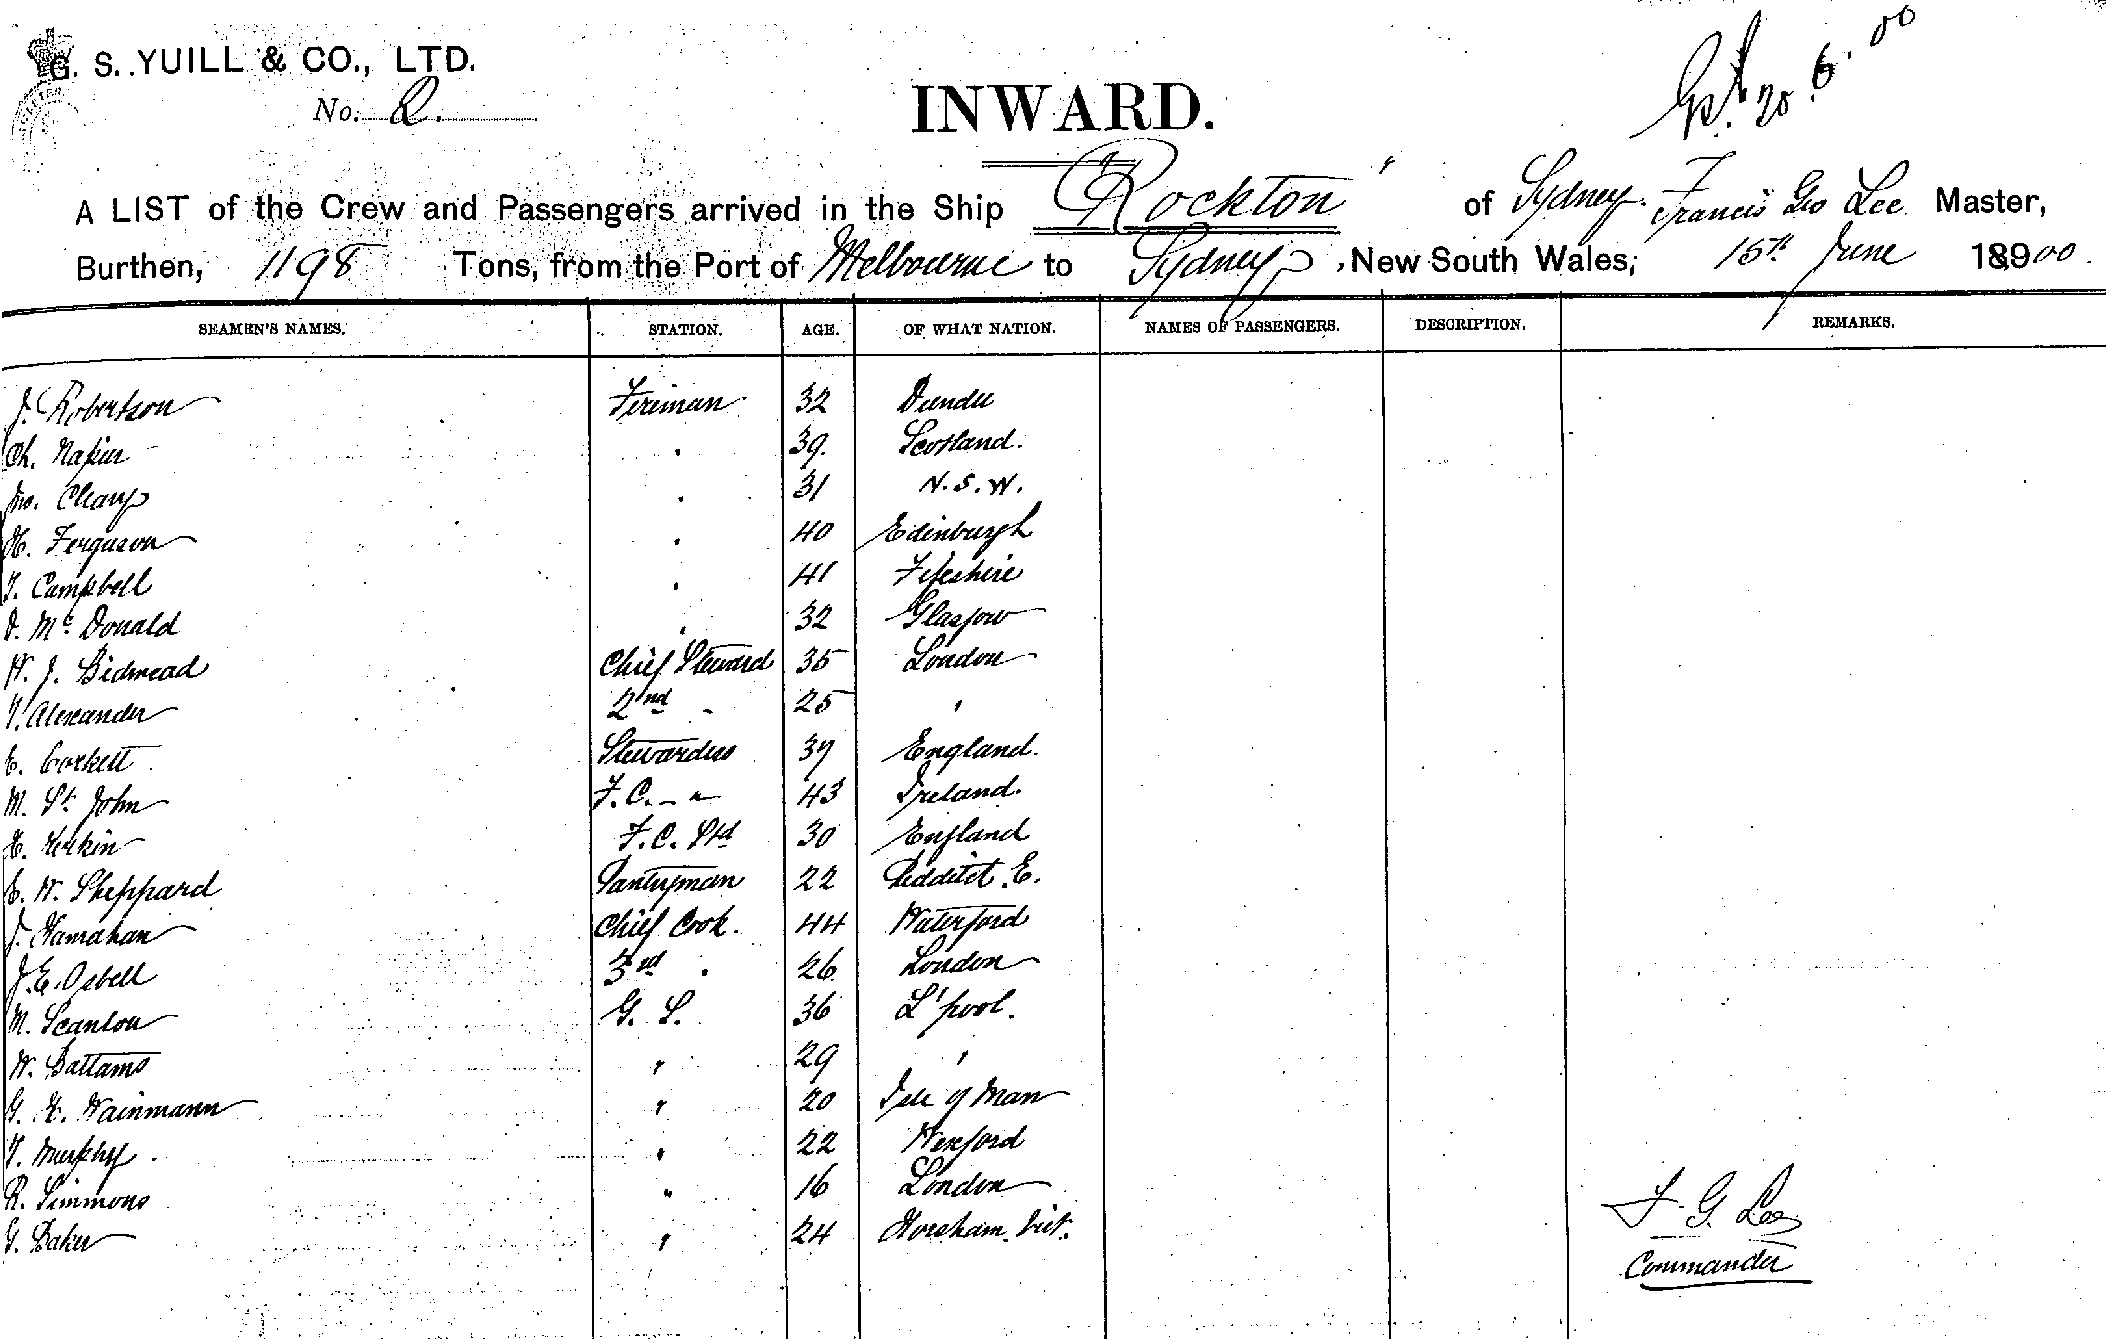 G. S. YUILL & CO., LTD.
No. 2.
20.6.00
INWARD.
A LIST of the Crew and Passengers arrived in the Ship "Rockton" of Sydney. Francis Geo Lee Master,
Burthen, 1198 Tons, from the Port of Melbourne to Sydney, New South Wales, 15th June 18900.
SEAMEN'S NAMES. STATION. AGE. OF WHAT NATION. NAMES OF PASSENGERS. DESCRIPTION. REMARKS.
J. Robertson Fireman 32 Dundee
Ch. Napier " 39. Scotland.
Jno. Cleary " 31 N.S.W.
H. Ferguson " 40 Edinburgh
T. Campbell " 41 Fifeshire
D. McDonald " 32 Glasgow
W. J. Bidmead Chief Steward 35 London
V. Alexander 2nd " 25 "
E. Corkett Stewardess 37 England.
M. St. John F.C. - " 43 Ireland.
H. F.C. Std 30 England
E. W. Sheppard Pantryman 22 Redditch E.
J. Hanrahan Chief Cook. 44 Waterford
J. E. Osbell 3rd " 26 London
M. Scanlon G. S. 36 L'pool.
W. Battams " 29 "
G. H. Wainmann " 20 Isle of Man
V. Murphy " 22 Wexford
R. Simmons " 16 London
G. Baker " 24 Horsham. Vict.
F. G. Lee
Commander